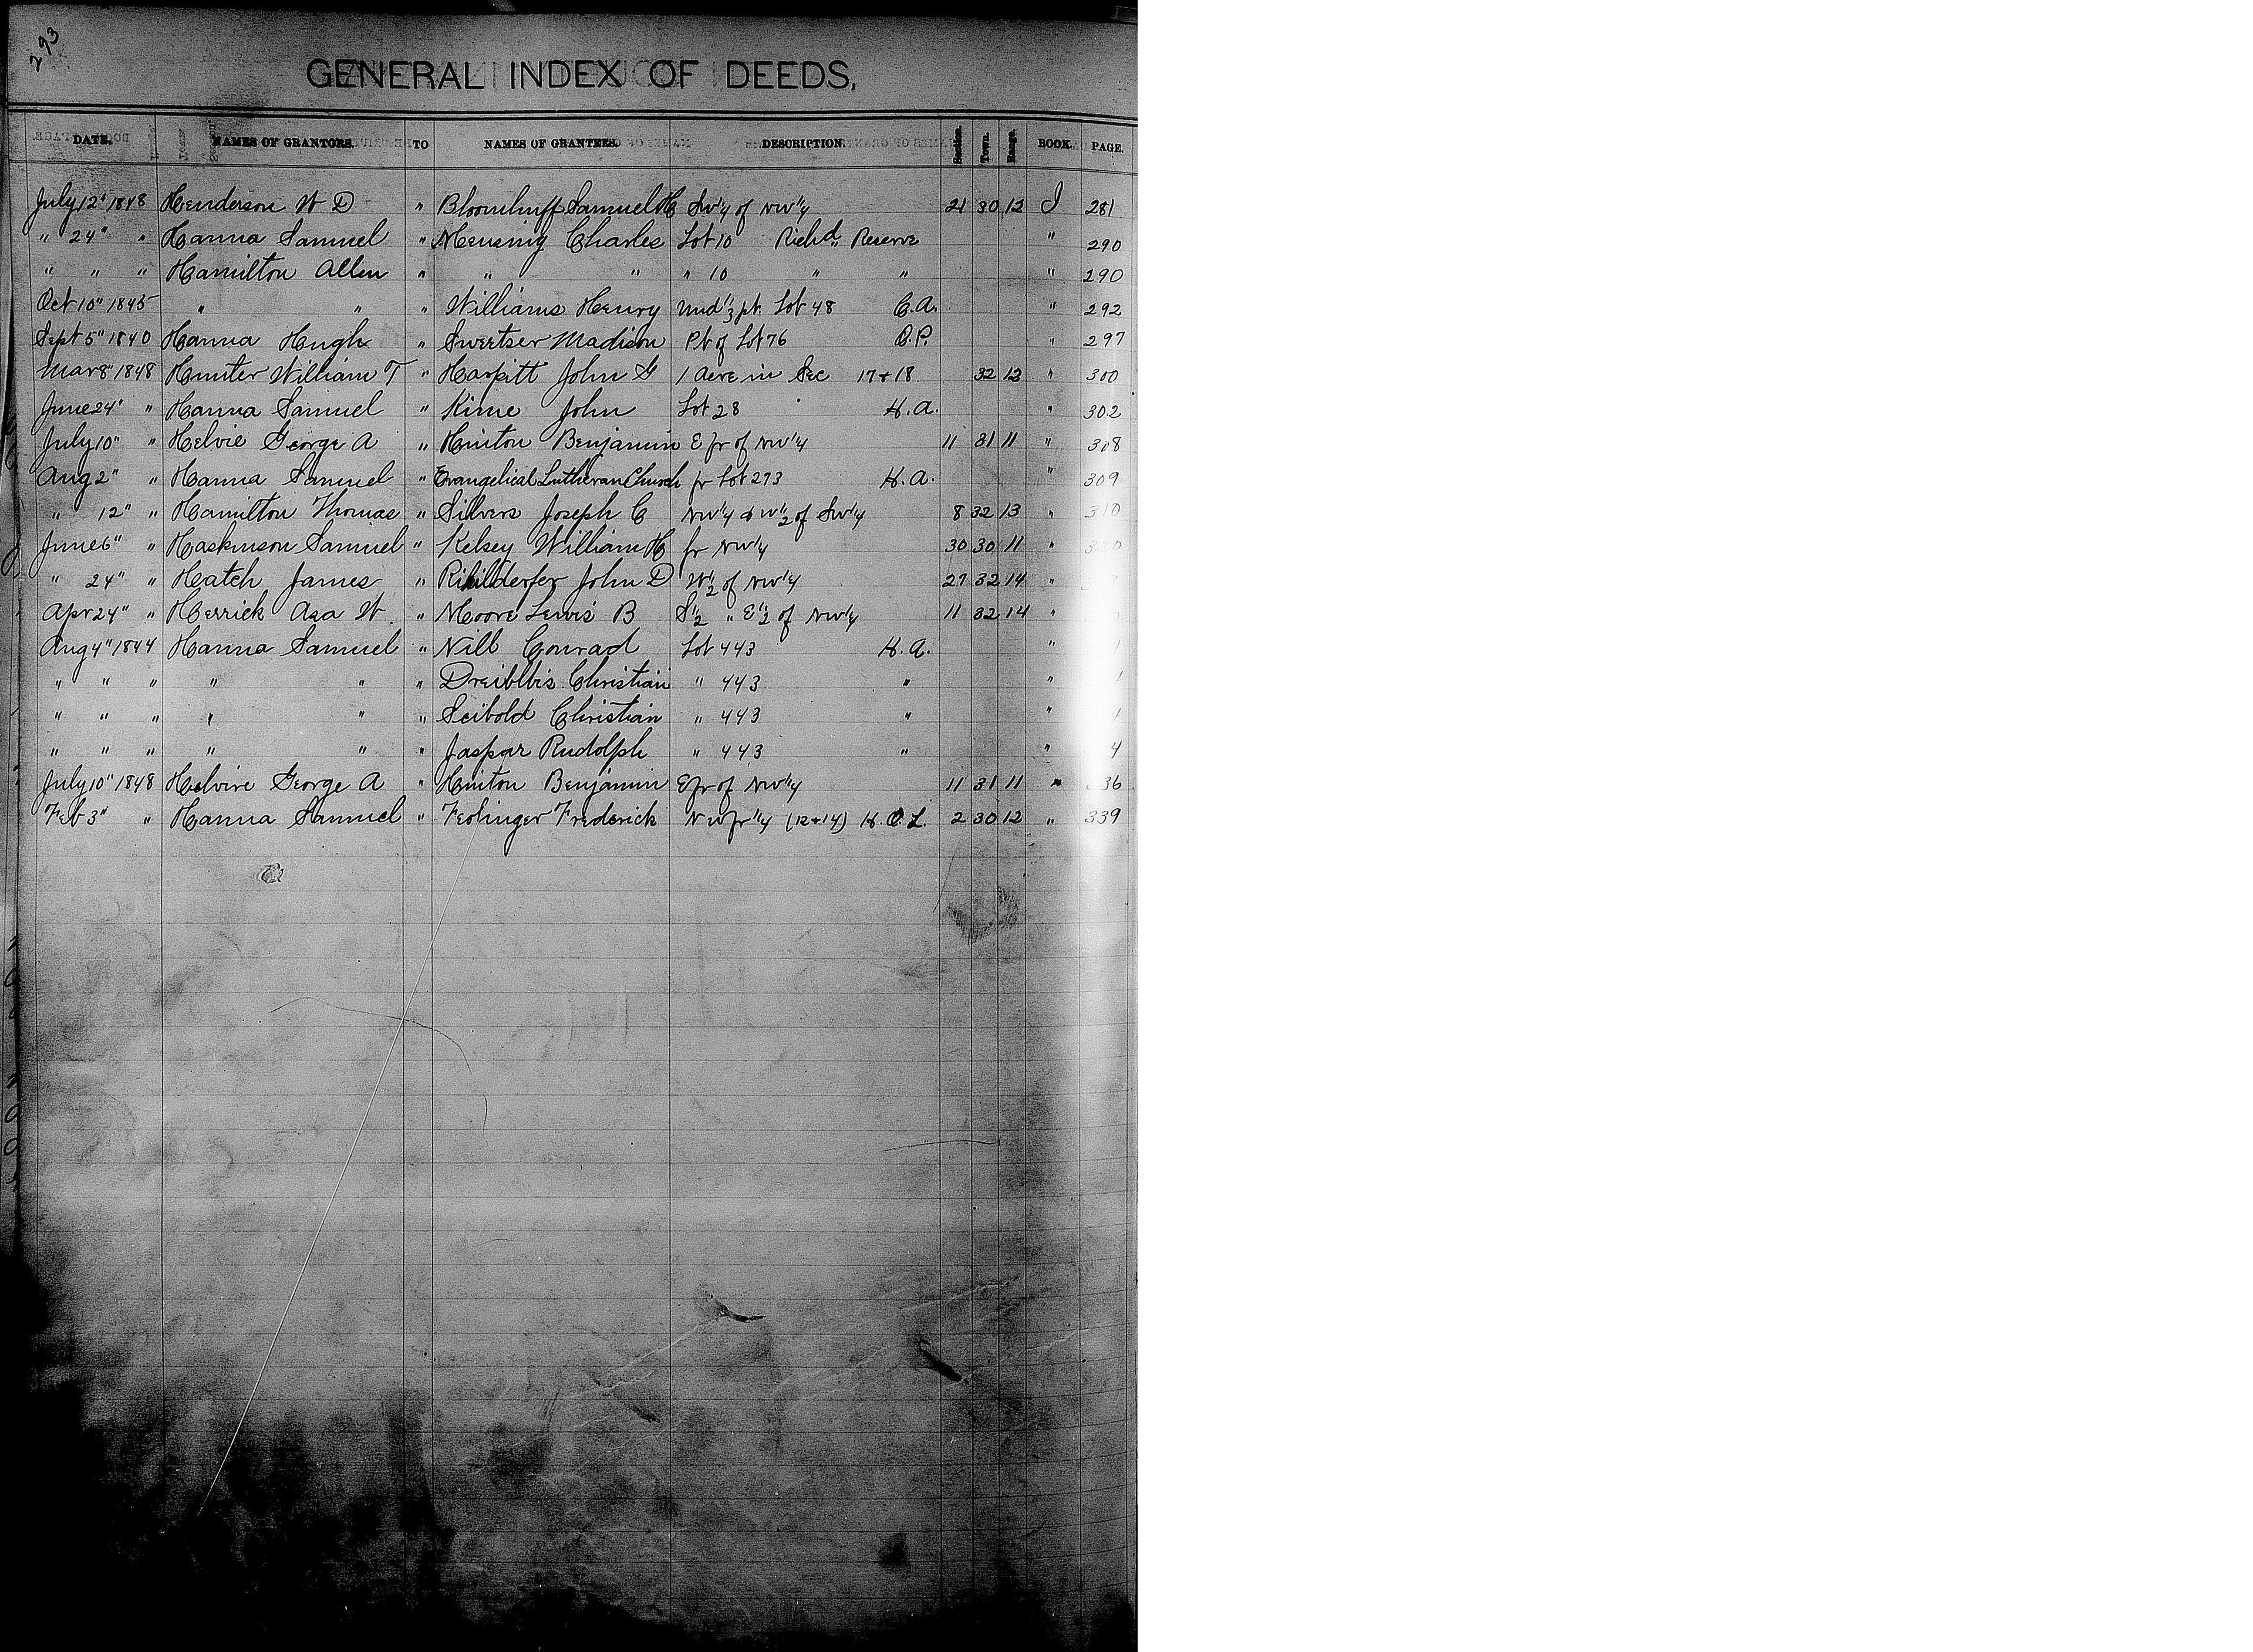 293
GENERAL INDEX OF DEEDS.
DATE. NAMES OF GRANTORS. TO NAMES OF GRANTEES. DESCRIPTION. Section. Town. Range. BOOK. PAGE.
July 12" 1848 Henderson W D " Bloomhuff Samuel H Sw 1/4 of NW 1/4 21 30 12 I 281
" 24" " Hanna Samuel " Mensing Charles Lot 10 Richd Reserve " 290
" " " Hamilton Allen " " " " 10 " " " 290
Oct 10" 1845 " " " Williams Henry Und 1/3 pt. Lot 48 C.A. " 292
Sept 5" 1840 Hanna Hugh " Swertser Madison Pt of Lot 76 O.P. " 297
Mar 8" 1848 Hunter William T " Haspitt John G 1 Acre in Sec 17 & 18 32 12 " 300
June 24" " Hanna Samuel " Kime John Lot 28 H.A. " 302
July 10" " Helvie George A " Hinton Benjamin E fr of NW 1/4 11 31 11 " 308
Aug 2" " Hanna Samuel " Evangelical Lutheran Church fr Lot 273 H.A. " 309
" 12" " Hamilton Thomas " Silvers Joseph C NW 1/4 & W 1/2 of SW 1/4 8 32 13 " 310
June 6" " Haskinson Samuel " Kelsey William H fr NW 1/4 30 30 11 "
" 24" " Hatch James " John D W 1/2 of NW 1/4 27 32 14 "
Apr 24" " Herrick Asa W. " Moore Lewis B S 1/2 " E 1/2 of NW 1/4 11 32 14 "
Aug 4" 1844 Hanna Samuel " Nill Conrad Lot 443 H.A. "
" " " " " " Dreiblbis Christian " 443 " "
" " " " " " Seibold Christian " 443 " "
" " " " " " Jaspar Rudolph " 443 " " 4
July 10" 1848 Helvire George A " Hinton Benjamin E fr of NW 1/4 11 31 11 " 36
Feb 3" " Hanna Samuel " Feolinger Frederick N W fr 1/4 (12 & 14) H.C.L. 2 30 12 " 339